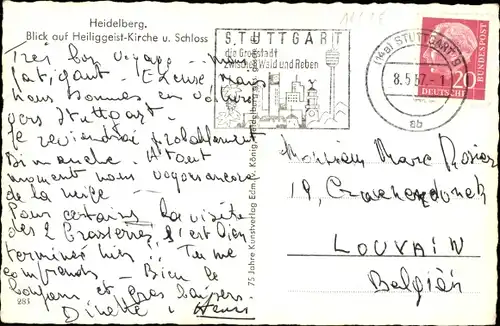 Heidelberg.
Blick auf Heiligegeist-Kirche u. Schloss
Très bon voyage – mais
fatigant – Excuse mais
nous sommes en voiture
vers Stuttgart
Je reviendrai probablement
Dimanche. A tout
moment nous voyons encore
de la neige –
Pour certains la visite
des 2 Brasseries, s'est bien
terminée hier !! Tu me
comprends – Bien le
bonjour et Gros baisers.
Dinette, Henri
281
75 Jahre Kunstverlag Edm. König, Heidelberg
STUTTGART
die Großstadt
zwischen Wald und Reben
(14a) STUTTGART 9
8.5.57.-1
ab
20
DEUTSCHE BUNDESPOST
Monsieur Marc Rosier
19, Craenendonck
LOUVAIN
Belgien